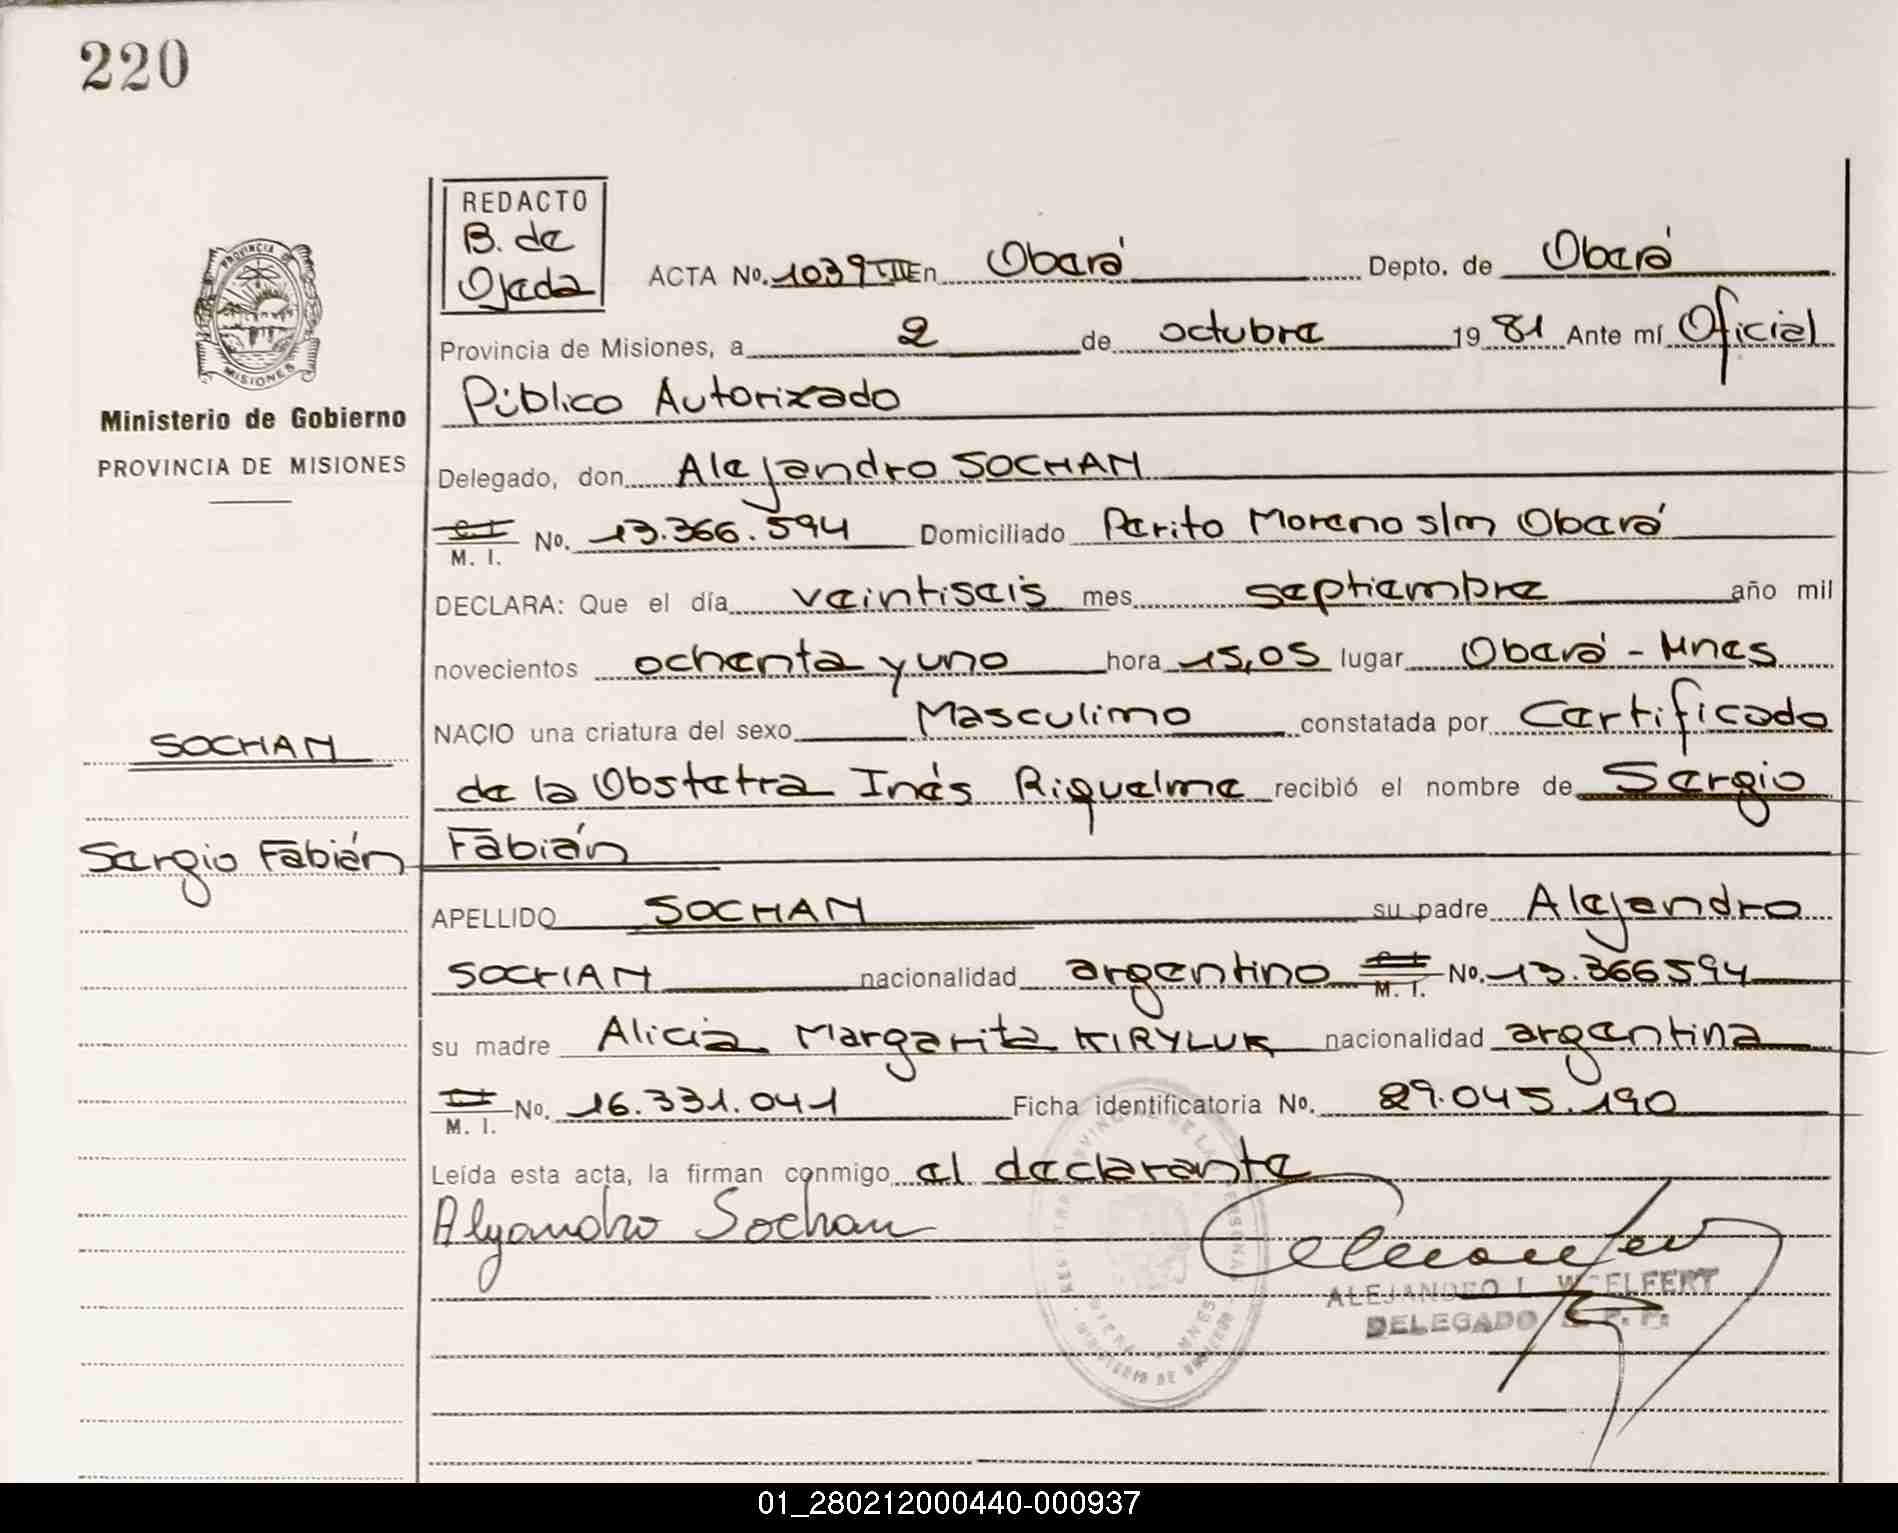 220
REDACTO
B. de
Ojeda
ACTA No. 1039 TIII En Oberá Depto. de Oberá
Provincia de Misiones, a 2 de octubre 19 81 Ante mí Oficial
Público Autorizado
PROVINCIA
MISIONES
Ministerio de Gobierno
PROVINCIA DE MISIONES
Delegado, don Alejandro SOCHAN
C. I.
M. I. No. 13.366.594 Domiciliado Perito Moreno s/n Oberá
DECLARA: Que el día veintiseis mes septiembre año mil
novecientos ochenta y uno hora 15,05 lugar Oberá - Mnes
NACIO una criatura del sexo Masculino constatada por Certificado
SOCHAN
de la Obstetra Inés Riquelme recibió el nombre de Sergio
Sergio Fabián
Fabián
APELLIDO SOCHAN su padre Alejandro
SOCHAN nacionalidad argentino C. I. M. I. No. 13.366594
su madre Alicia Margarita KIRYLUK nacionalidad argentina
M. I. No. 16.331.041 Ficha identificatoria No. 29.045.190
Leída esta acta, la firman conmigo el declarante
Alejandro Sochan
ALEJANDRO L. WOELFERT
DELEGADO
01_280212000440-000937